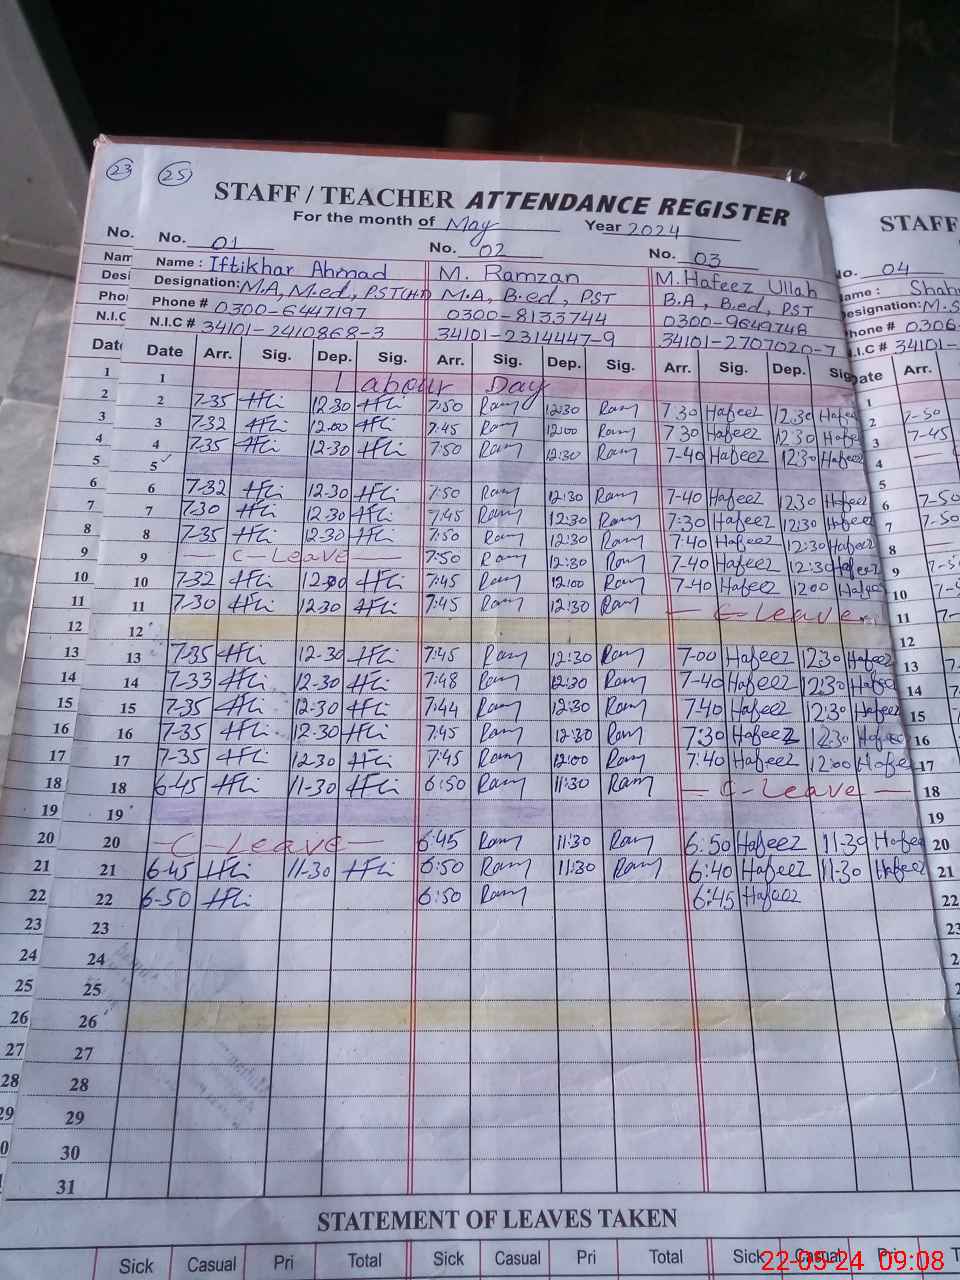 23 25
STAFF / TEACHER ATTENDANCE REGISTER STAFF
For the month of May Year 2024
No. No. 01 No. 02 No. 03 No. 04
Nam Name : Iftikhar Ahmad M. Ramzan M.Hafeez Ullah ame : Shah
Desi Designation: M.A, M.ed, PST(H.T) M.A, B.ed, PST B.A, B.ed, PST Designation: M.S
Pho Phone # 0300-6447197 0300-8133744 0300-9649748 hone # 0306-
N.I.C N.I.C # 34101-2410868-3 34101-2314447-9 34101-2707020-7 .I.C # 34101-
Date Date Arr. Sig. Dep. Sig. Arr. Sig. Dep. Sig. Arr. Sig. Dep. Sig. Date Arr.
1 1 Labour Day 1
2 2 7-35 12-30 7:50 Ram 12:30 Ram 7.30 Hafeez 12.30 Hafee 2 7-50
3 3 7-32 12.00 7:45 Ram 12:00 Ram 7.30 Hafeez 12.30 Hafee 3 7-45
4 4 7-35 12-30 7:50 Ram 12:30 Ram 7-40 Hafeez 12:30 Hafeez 4
5 5 5
6 6 7-32 12-30 7:50 Ram 12:30 Ram 7-40 Hafeez 12.30 Hafeez 6 7-50
7 7 7-30 12-30 7:45 Ram 12:30 Ram 7:30 Hafeez 12:30 Hafeez 7 7-50
8 8 7-35 12-30 7:50 Ram 12:30 Ram 7:40 Hafeez 12:30 Hafeez 8
9 9 — C-Leave — 7:50 Ram 12:30 Ram 7-40 Hafeez 12:30 Hafeez 9
10 10 7-32 7:45 Ram 12:00 Ram 7-40 Hafeez 12:00 Hafeez 10
11 11 7-30 12-30 7:45 Ram 12:30 Ram — C-Leave 11
12 12 12
13 13 7-35 12-30 7:45 Ram 12:30 Ram 7-00 Hafeez 12:30 Hafeez 13
14 14 7-33 12-30 7:48 Ram 12:30 Ram 7-40 Hafeez 12:30 Hafee 14
15 15 7-35 12-30 7:44 Ram 12:30 Ram 7:40 Hafeez 12:30 Hafeez 15
16 16 7-35 12-30 7:45 Ram 12:30 Ram 7:30 Hafeez 12:30 Hafeez 16
17 17 7-35 12-30 7:45 Ram 12:00 Ram 7:40 Hafeez 12:00 Hafee 17
18 18 6-45 11-30 6:50 Ram 11:30 Ram — C-Leave — 18
19 19 19
20 20 — C-Leave — 6:45 Ram 11:30 Ram 6:50 Hafeez 11-30 Hafee 20
21 21 6-45 11-30 6:50 Ram 11:30 Ram 6:40 Hafeez 11-30 Hafeez 21
22 22 6-50 6:50 Ram 6:45 Hafeez 22
23 23 23
24 24
25 25
26 26
27 27
28 28
29 29
30
31
STATEMENT OF LEAVES TAKEN
Sick Casual Pri Total Sick Casual Pri Total Sick Casual Pri
22-05-24 09:08